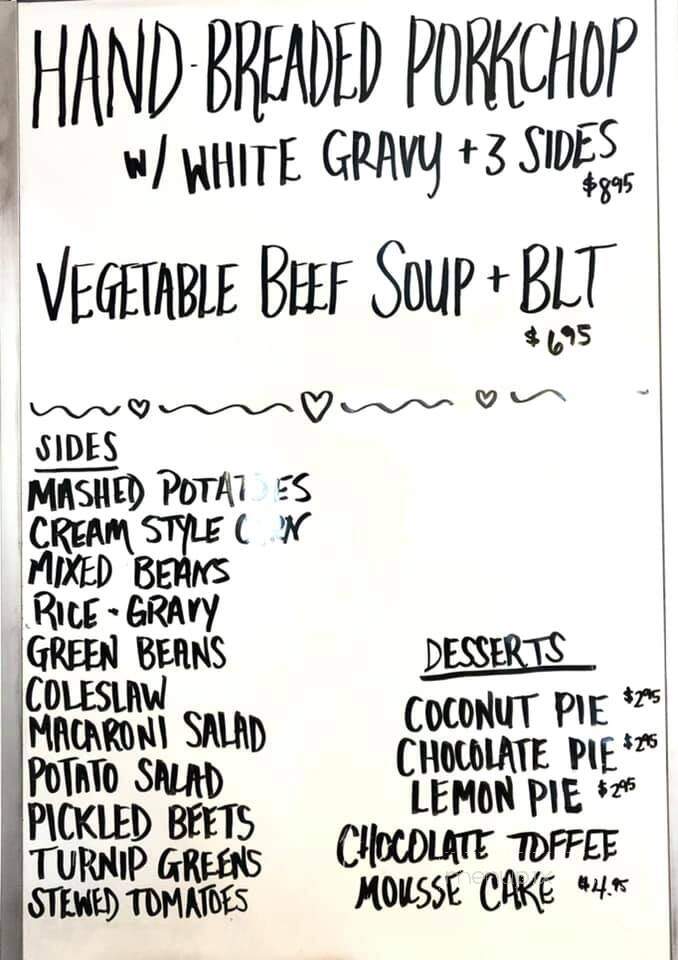 HAND-BREADED PORKCHOP
W/ WHITE GRAVY + 3 SIDES
$8.95
VEGETABLE BEEF SOUP + BLT
$6.95
SIDES
MASHED POTATOES
CREAM STYLE CORN
MIXED BEANS
RICE - GRAVY
GREEN BEANS
COLESLAW
MACARONI SALAD
POTATO SALAD
PICKLED BEETS
TURNIP GREENS
STEWED TOMATOES
DESSERTS
COCONUT PIE $2.95
CHOCOLATE PIE $2.95
LEMON PIE $2.95
CHOCOLATE TOFFEE
MOUSSE CAKE $4.95